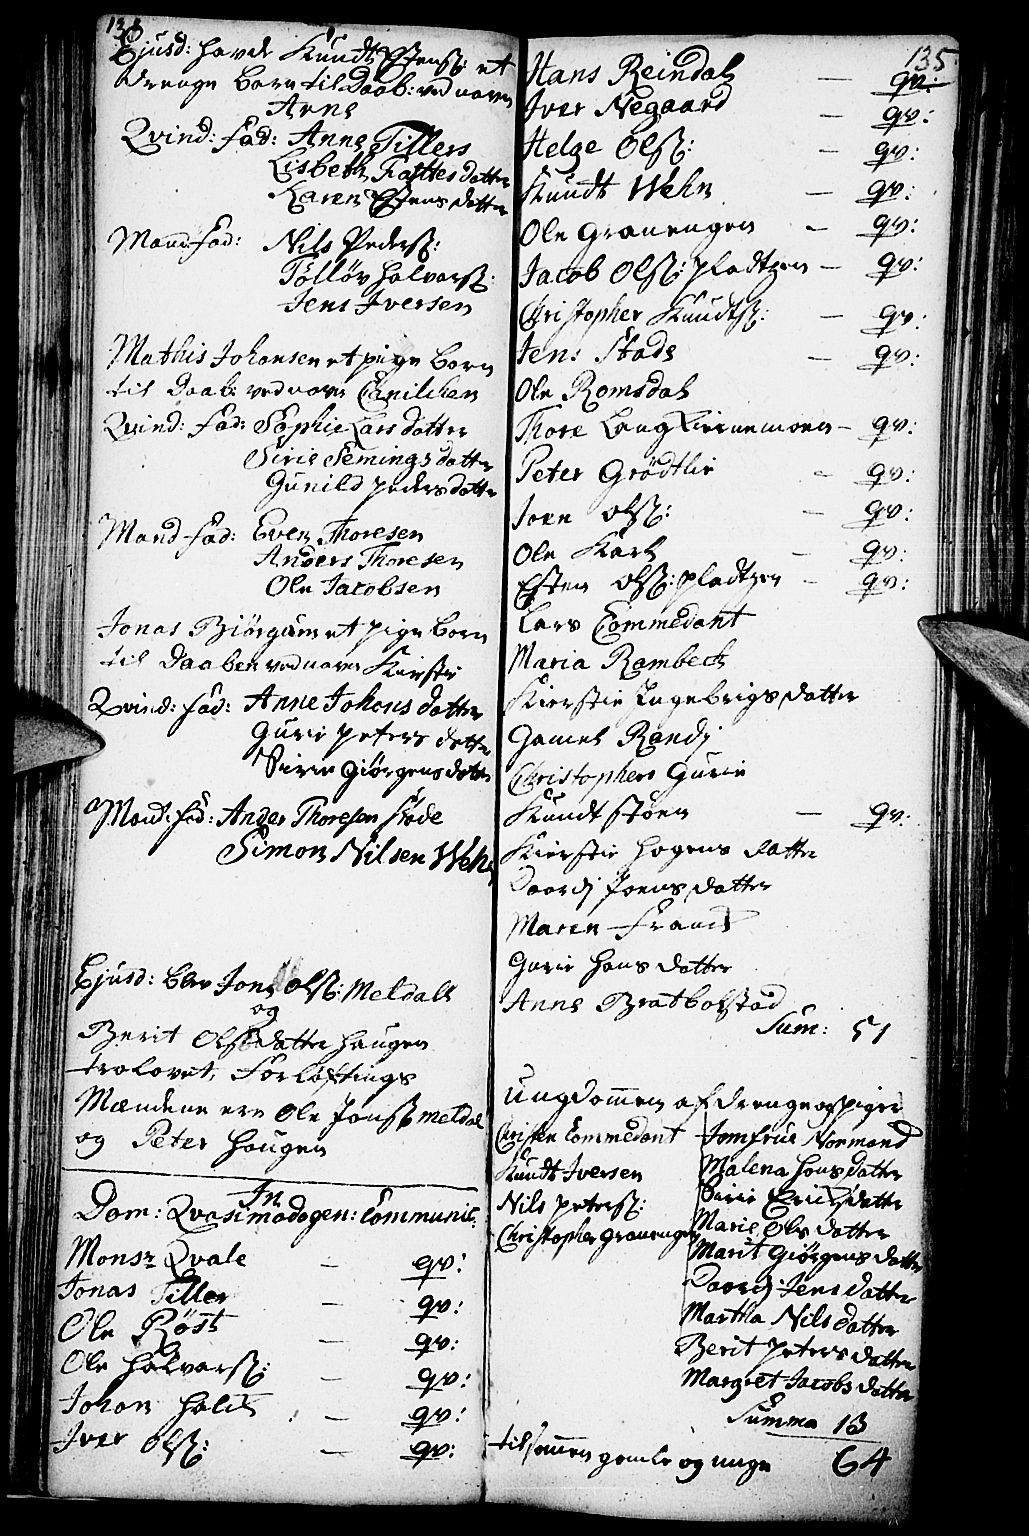 134
Ejusd: havde Knudt Estens: et
drenge barn til Daab: ved navn
Arne
Qvind: fad: Anne Tillers
Lisbeth Fattesdatter
Karen Estensdatter
Mand fad: Nils Peders:
Tølløv halvors:
Jens Iversen
Mathis Johansen et pige barn
til Daab: ved navn Engilchen
Qvind: fad: Sophie Larsdatter
Sirie Semingsdatter
Gunild pedersdatter
Mand fad: Even Thoresen
Anders Thoresen
Ole Jacobsen
Jonas Biörgum et pige barn
til Daaben ved navn Kirstie
Qvind: fad: Anne Johansdatter
Gurie petersdatter
Sirie Giörgensdatter
Mand: fad: Anders Thoresen Stade
Simon Nilsen Wehn
Ejusd: blev Jens Ols: Meldall
og
Berit Olsdatter haugen
trolovet, Forløftnings
Mændene ere Ole Jons: meldal
og Peter haugen
In
Dom: Qvasimodogen: Communic:
Monsr Qvale – qv:
Jonas Tiller – qv:
Ole Röst – qv:
Ole halvors: – qv:
Johan hald – qv:
Iver Ols: – qv:
135
Hans Reindal – qv:
Iver Negaard – qv:
Helge Ols: – qv:
Knudt Wehn – qv:
Ole Grauengen – qv:
Jacob Ols: pladtzen – qv:
Christopher Knudts: – qv:
Jens Stade – qv:
Ole Romsdal
Thore Langkiernemoen – qv:
Peter Grödtlie – qv:
Joen ols: – qv:
Ole Karl – qv:
Esten ols: pladtzen – qv:
Lars Commedant
Maria Rambech
Kierstie Ingebrigsdatter
Gamel Randj
Christophers Gurie
Knudt stöen – qv:
Kierstie hagensdatter
Daardj Joensdatter
Maren Frands
Gurie hansdatter
Anne Bratbolstad
Sum: 51
Ungdommen af drenge og piger
Christen Commedant Jomfrue Normand
Knudt Iversen Malena hansdatter
Nils peters: Sirie Erichsdatter
Christopher Grauengen Marie Olsdatter
Marit Giörgensdatter
Daardj Jensdatter
Martha Nilsdatter
Berit petersdatter
Margret Jacobsdatter
Summa 13
tilsammen gamle og unge 64